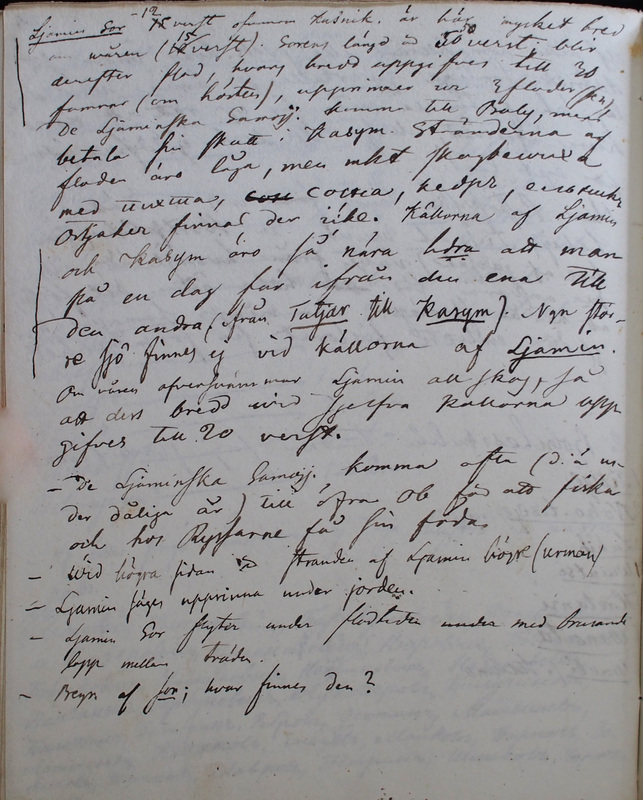 Ljamin Sor -12 verst ofvanom Kušnik. är här mycket bred
om våren (15 verst). Sorens längd är 50 verst, blir
derefter flod, hvars bredd uppgifves till 30
famnar (om hösten), upprinner ur
De Ljaminska Samoj. komma till Baly, men
betala sin skatt i Kasym. Stränderna af
floden äro låga, men
med пихта, сосна, кедръ,
Ostjaker finnas der icke. Källorna af Ljamin
och Kasym äro så nära hdra att man
på en dag far ifrån den ena till
den andra (från Tatjar till Kasym). Ngn stör-
re sjö finnes ej vid källorna af Ljamin.
Om våren öfversvämmar Ljamin all skog, så
att dess bredd vid sjelfva källorna upp
gifves till 20 verst.
- De Ljaminska Samoj. komma ofta (d. ä un-
der dåliga år) till öfra Ob för att fiska
och hos Ryssarne få sin föda.
- Vid högra sidan är stranden af Ljamin högre (urman)
- Ljamin säges upprinna under jorden.
- Ljamin Sor flyter under flodtiden under med brusande
lopp mellan träden.
- Bren af sor; hvar finnes den?